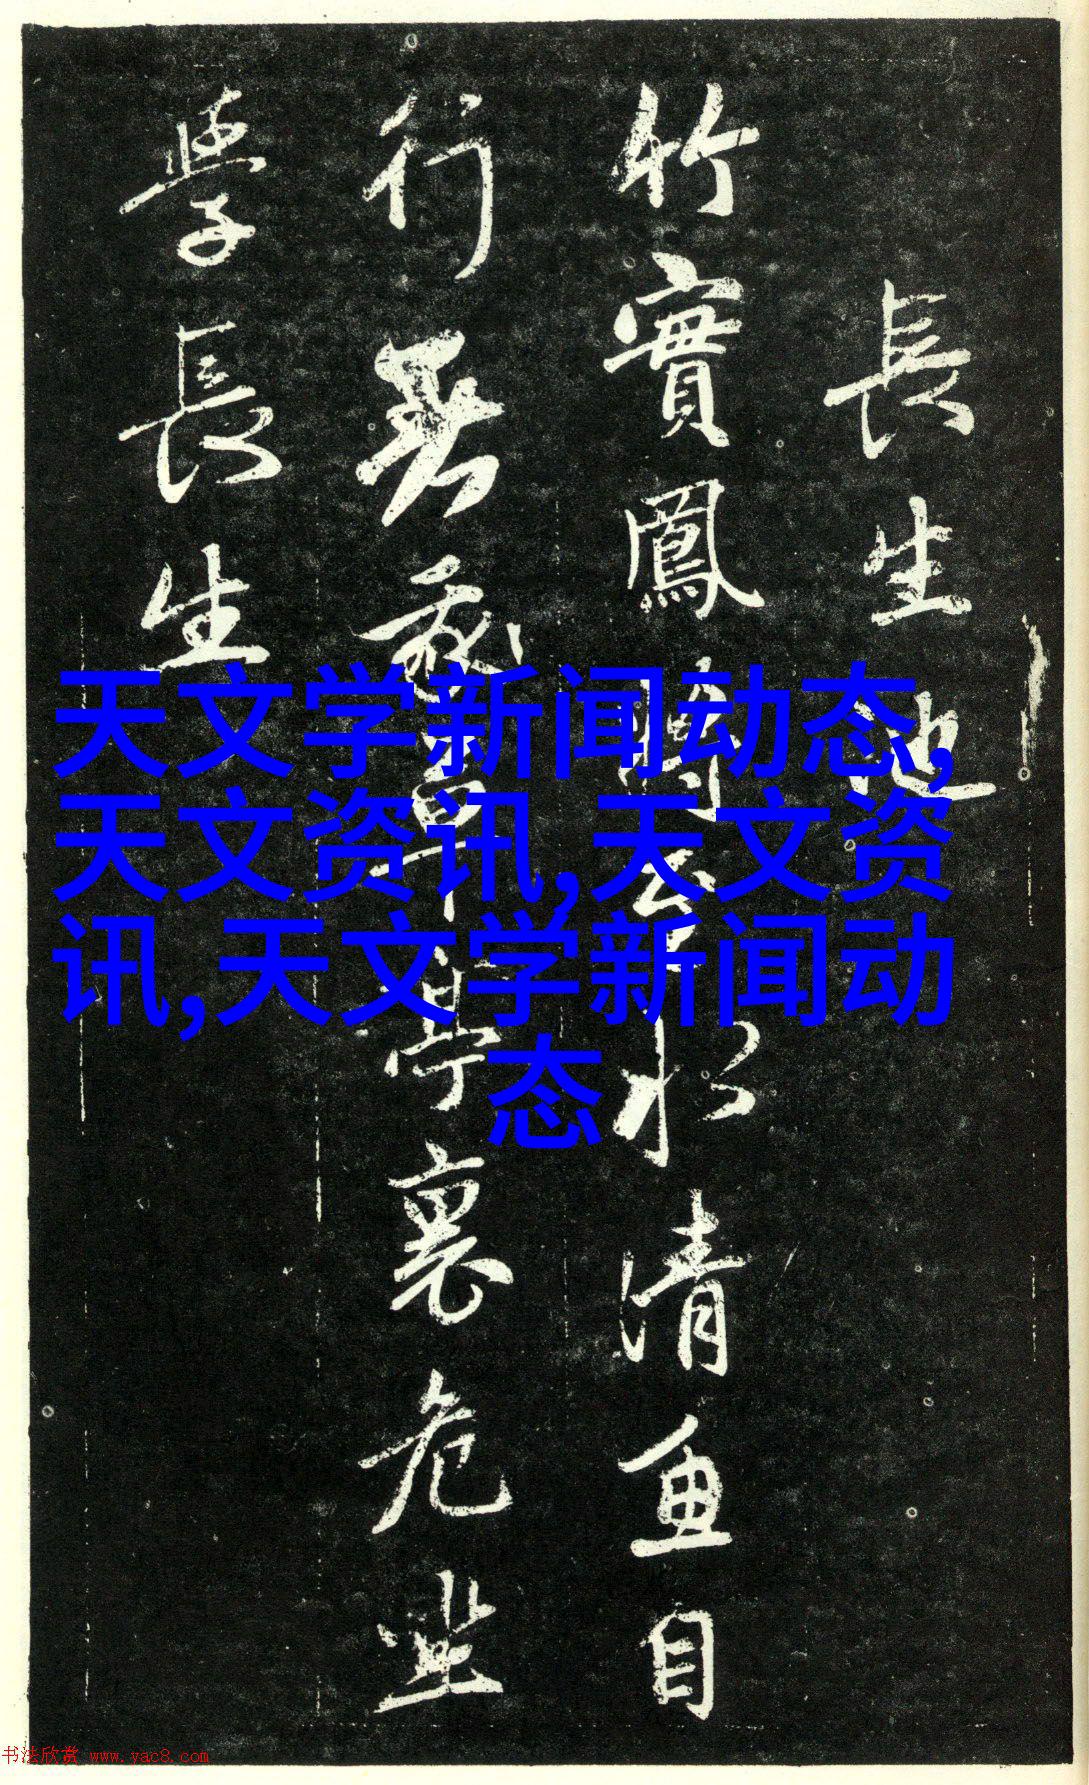 天文学新闻动态,
天文资讯,天文资
讯,天文学新闻动
态
長生池
竹實鳳將水清魚自
行裏危坐
學長生
书法欣赏 www.yac8.com